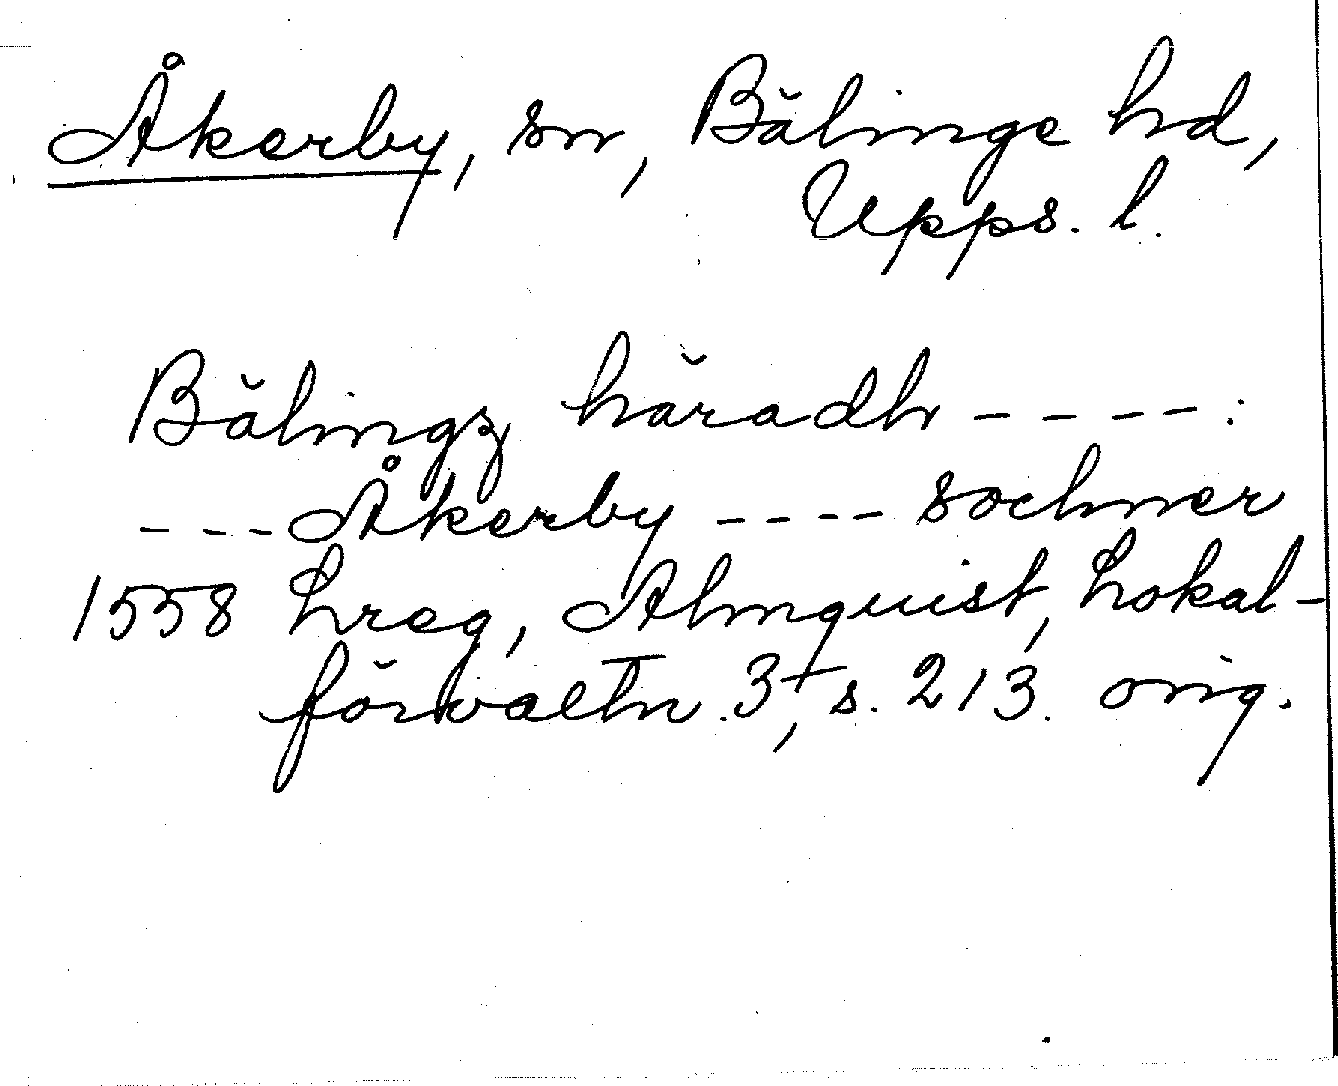 Åkerby, sn, Bälinge hd,
Upps. l.
Bälingz häradh - - - - :
- - - Åkerby - - - - sochner
1558 hreg, Almquist, Lokal-
förvaltn. 3, s. 213. orig.